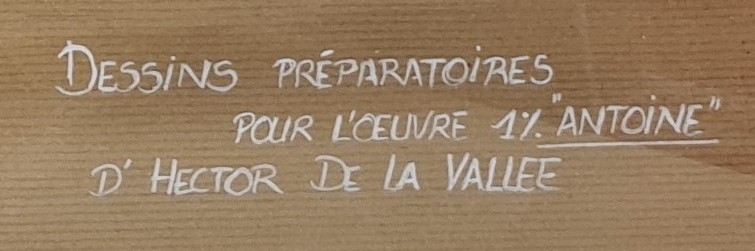 DESSINS PRÉPARATOIRES
POUR L'ŒUVRE 1% "ANTOINE"
D' HECTOR DE LA VALLEE